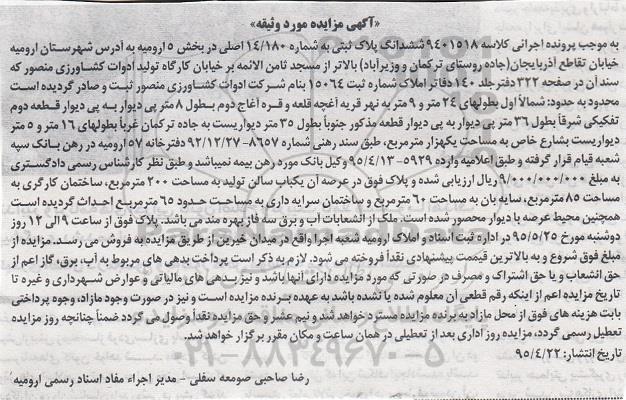 «آگهی مزایده مورد وثیقه»
به موجب پرونده اجرائی کلاسه ۹۴۰۱۵۱۸ ششدانگ پلاک ثبتی به شماره ۱۴/۱۸۰ اصلی در بخش ۵ ارومیه به آدرس شهرستان ارومیه
خیابان تقاطع آذربایجان (جاده روستای ترکمان و وزیرآباد) بالاتر از مسجد ثامن الائمه بر خیابان کارگاه تولید ادوات کشاورزی منصور که
سند آن در صفحه ۳۲۲ دفتر جلد ۱۴۰ دفاتر املاک شماره ثبت ۱۵۰۶۴ بنام شرکت ادوات کشاورزی منصور ثبت و صادر گردیده است
محدود به حدود: شمالاً اول بطولهای ۲۴ متر و ۹ متر به نهر قریه آغچه قلعه و قره آغاج دوم بطول ۸ متر پی دیوار به پی دیوار قطعه دوم
تفکیکی شرقاً بطول ۳۶ متر پی دیوار به پی دیوار قطعه مذکور جنوباً بطول ۳۵ متر دیواریست به جاده ترکمان غرباً بطولهای ۱۶ متر و ۵ متر
دیواریست بشارع خاص به مساحت یکهزار مترمربع، طبق سند رهنی شماره ۸۶۵۷-۹۲/۱۲/۲۷ دفترخانه ۵۷ ارومیه در رهن بانک سپه
شعبه قیام قرار گرفته و طبق اعلامیه وارده ۵۹۳۹-۹۵/۴/۱۳ وکیل بانک مورد رهن بیمه نمیباشد و طبق نظر کارشناس رسمی دادگستری
به مبلغ ۹/۰۰۰/۰۰۰/۰۰۰ ریال ارزیابی شده و پلاک فوق در عرصه آن یکباب سالن تولید به مساحت ۲۰۰ مترمربع، ساختمان کارگری به
مساحت ۸۵ مترمربع، سایه بان به مساحت ۶۰ مترمربع و ساختمان سرایه داری به مساحت حدود ۶۵ مترمربع احداث گردیده است
همچنین محیط عرصه با دیوار محصور شده است. ملک از انشعابات آب و برق سه فاز بهره مند می باشد. پلاک فوق از ساعت ۹ الی ۱۲ روز
دوشنبه مورخ ۹۵/۵/۲۵ در اداره ثبت اسناد و املاک ارومیه شعبه اجرا واقع در میدان خیبرین از طریق مزایده به فروش می رسد. مزایده از
مبلغ فوق شروع و به بالاترین قیمت پیشنهادی نقداً فروخته می شود. لازم به ذکر است پرداخت بدهی های مربوط به آب، برق، گاز اعم از
حق انشعاب و یا حق اشتراک و مصرف در صورتی که مورد مزایده دارای آنها باشد و نیز بدهی های مالیاتی و عوارض شهرداری و غیره تا
تاریخ مزایده اعم از اینکه رقم قطعی آن معلوم شده یا نشده باشد به عهده برنده مزایده است و نیز در صورت وجود مازاد، وجوه پرداختی
بابت هزینه های فوق از محل مازاد به برنده مزایده مسترد خواهد شد و نیم عشر و حق مزایده نقداً وصول می گردد ضمناً چنانچه روز مزایده
تعطیل رسمی گردد، مزایده روز اداری بعد از تعطیلی در همان ساعت و مکان مقرر برگزار خواهد شد.
تاریخ انتشار: ۹۵/۴/۲۲
رضا صاحبی صومعه سفلی - مدیر اجراء مفاد اسناد رسمی ارومیه